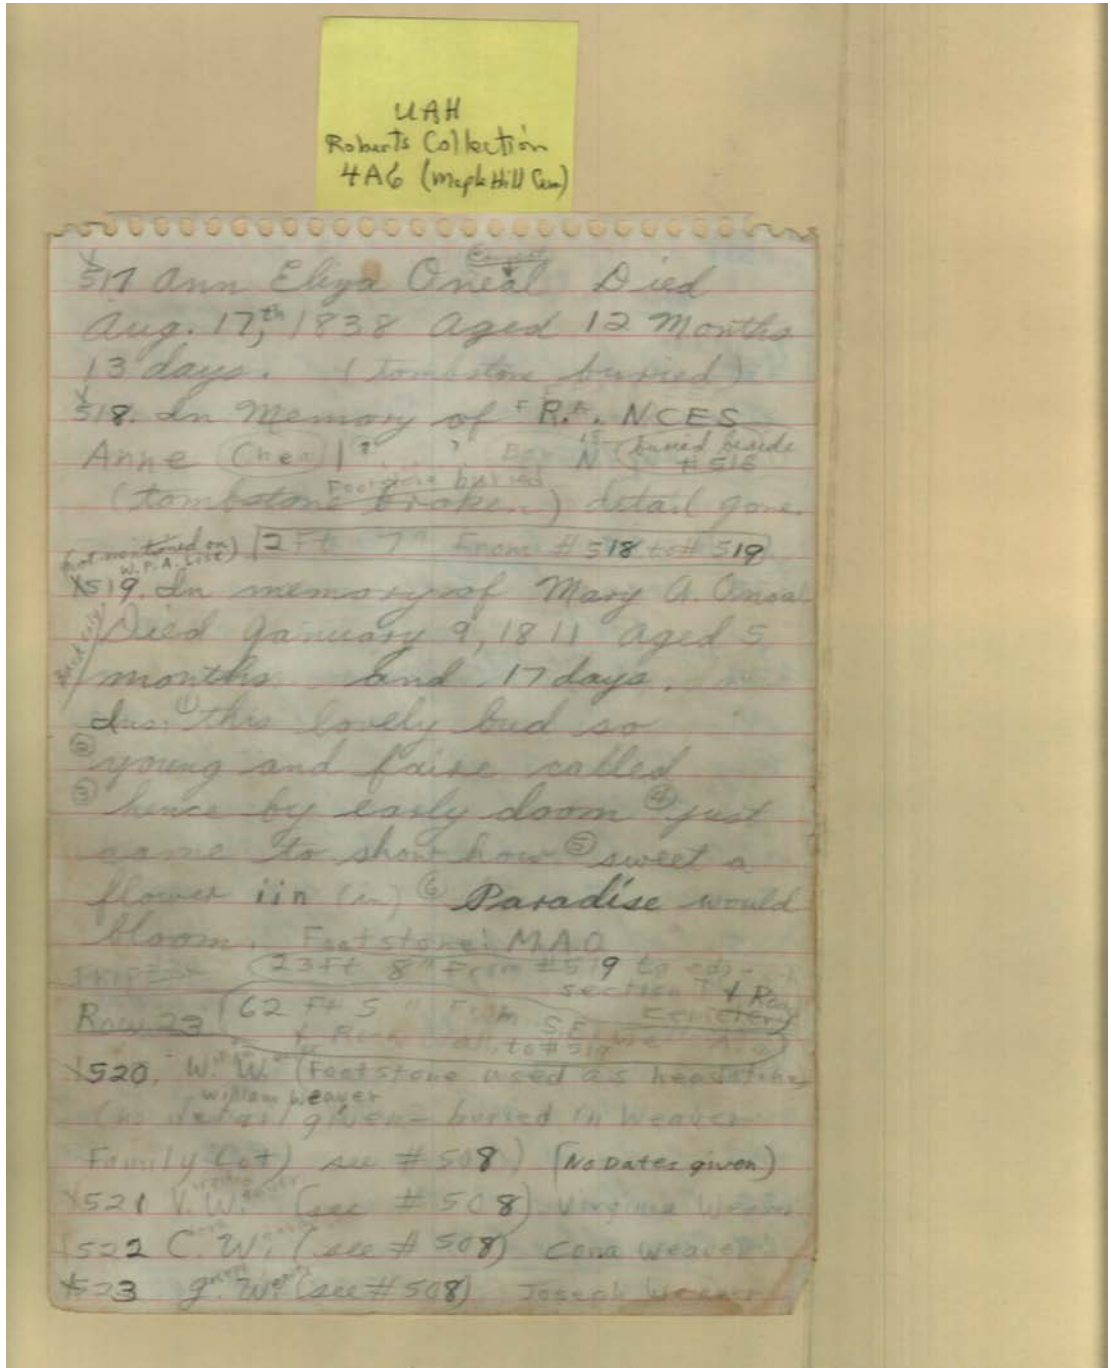 UAH
Roberts Collection
4A6 (Maple Hill Cem)
517 Ann Eliza Oneal Died
Aug. 17,th 1838 aged 12 Months
13 days. (tombstone buried)
518. In Memory of F R.A. NCES
Anne (Chea) buried beside
N # 516
Footstone buried
(tombstone broken) detail gone.
(not mentioned on W.P.A. List)
2 Ft 7" From # 518 to # 519
X519. In memory of Mary A. Oneal
Died January 9, 1811 aged 5
months and 17 days.
Ins. ① this lovely bud so
② young and faire called
③ hence by early doom ④ just
came to show how ⑤ sweet a
flower iin (in) ⑥ Paradise would
bloom. Footstone: M.A.O
23 Ft 8" From # 519 to
section
Cemetery
Row 23 62 Ft 5" From S.E.
Rock Wall, to # 519
X520. W. W. (Footstone used as headstone
William Weaver
(no detail given - buried in Weaver
Family Lot) see # 508) (No Dates given)
X521 V. W. (see # 508) Virginia Weaver
522 C. W. (see # 508) Cona Weaver
X523 J. W. (see # 508) Joseph Weaver